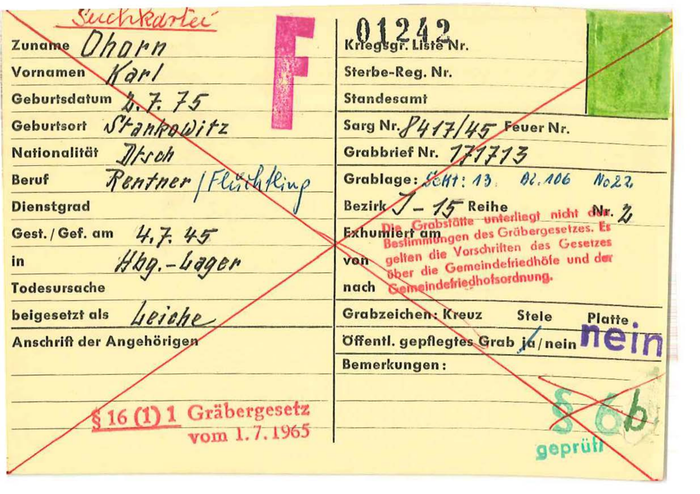 Suchkartei
Zuname Ohorn
Vornamen Karl
Geburtsdatum 2.7.75
Geburtsort Stankowitz
Nationalität Dtsch
Beruf Rentner / Flüchtling
Dienstgrad
Gest./Gef. am 4.7.45
in Hbg.-Lager
Todesursache
beigesetzt als Leiche
Anschrift der Angehörigen
§ 16 (1) 1 Gräbergesetz
vom 1.7.1965
F
01242
Kriegsgr. Liste Nr.
Sterbe-Reg. Nr.
Standesamt
Sarg Nr. 8417/45 Feuer Nr.
Grabbrief Nr. 171713
Grablage: 13 106 No 22
Bezirk J-15 Reihe Nr. 2
Exhumiert am
von
nach
Die Grabstätte unterliegt nicht den
Bestimmungen des Gräbergesetzes. Es
gelten die Vorschriften des Gesetzes
über die Gemeindefriedhöfe und der
Gemeindefriedhofsordnung.
Grabzeichen: Kreuz Stele Platte
Öffentl. gepflegtes Grab ja/nein nein
Bemerkungen:
§ 6 b
geprüft